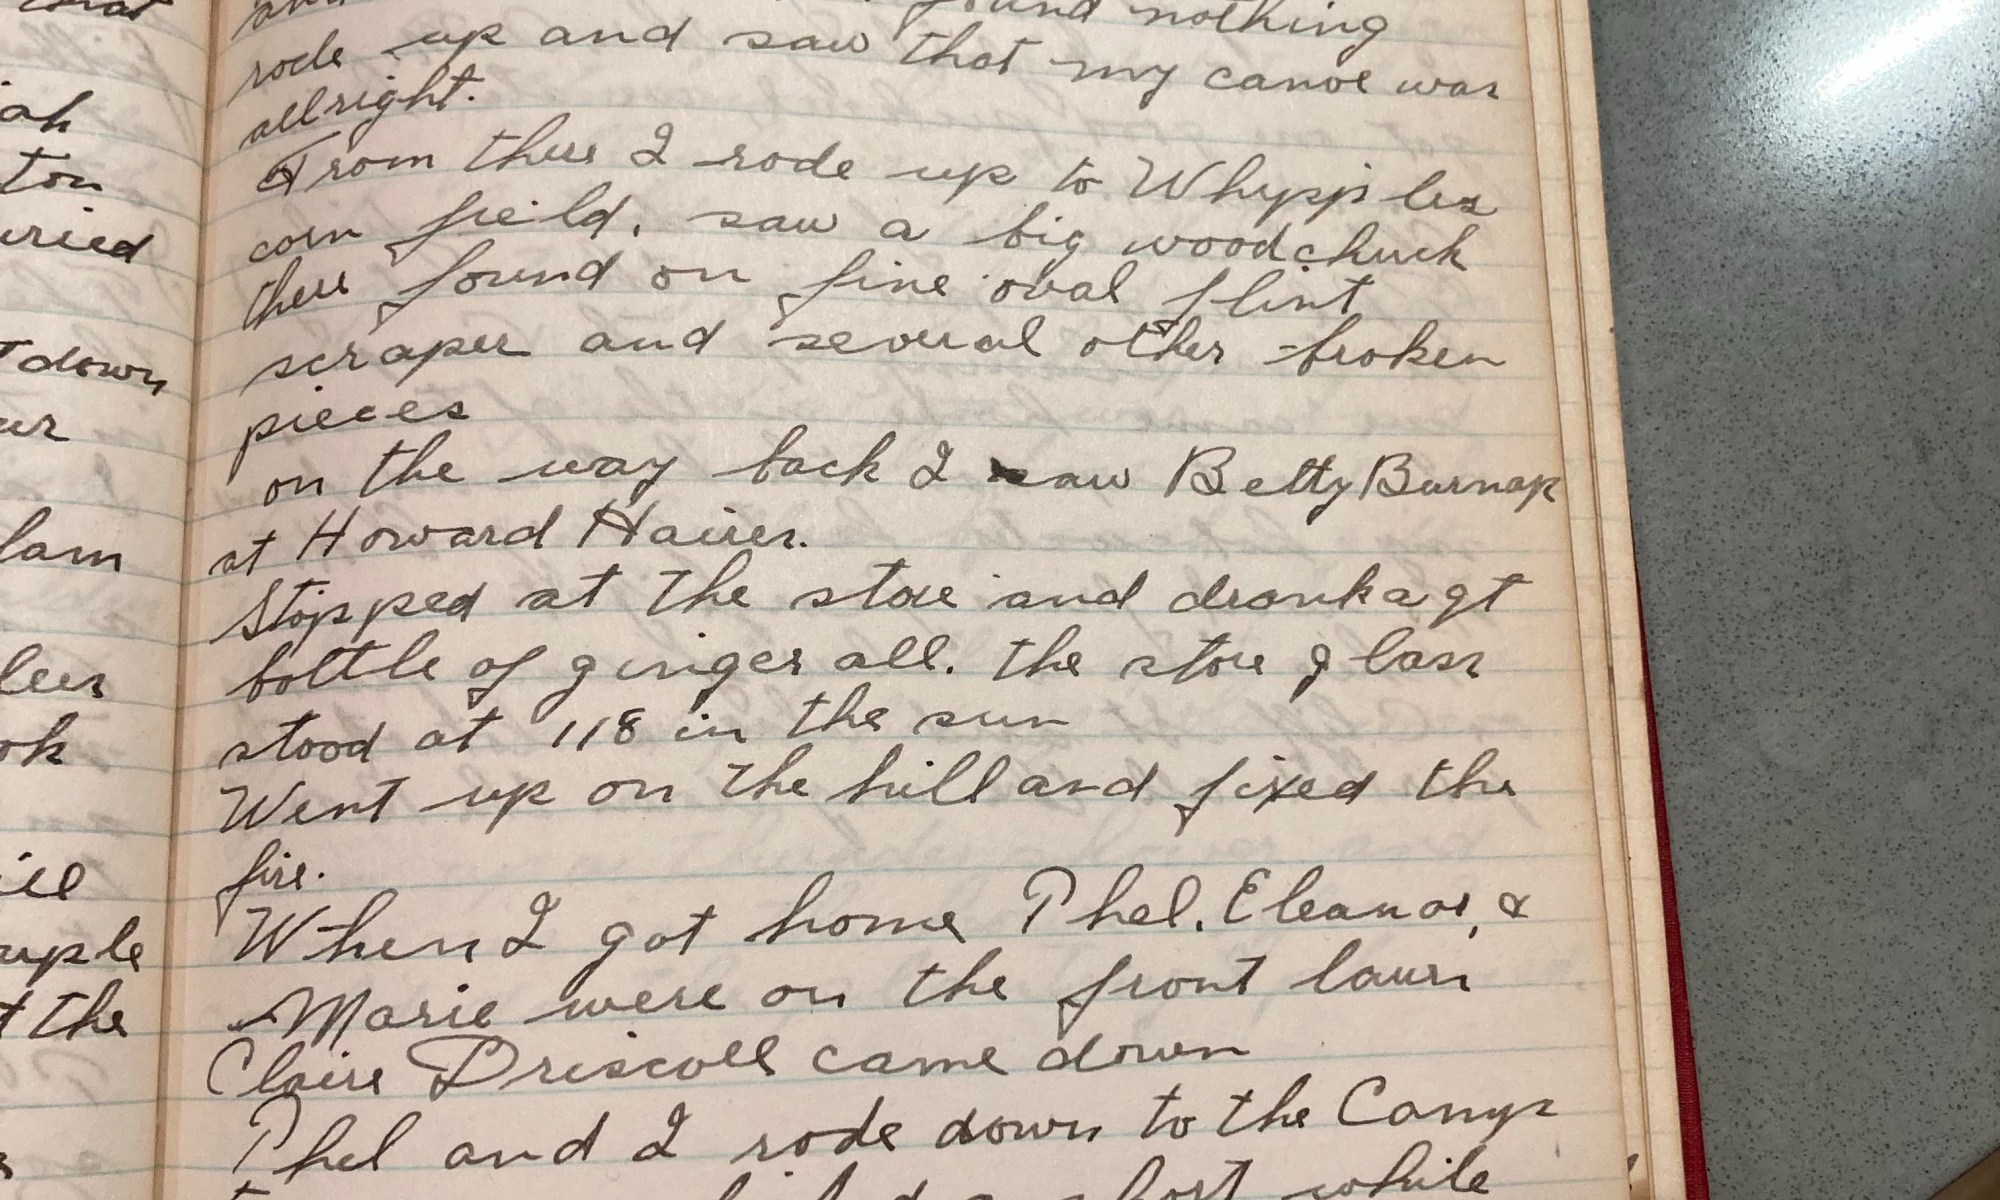 that
ah
ton
down
ur
lam
ok
uple
t the
found nothing
rode up and saw that my canoe was
allright.
From there I rode up to Whypples
corn feild. saw a big woodchuck
there found on fine oval flint
scraper and several other broken
pieces
on the way back I saw Betty Burnap
at Howard Haires.
Stopped at the store and drank a qt
bottle of ginger all. the store glass
stood at 118 in the sun
Went up on the hill and fixed the
fire.
When I got home Phel, Eleanor, &
Marie were on the front lawn
Claire Driscoll came down
Phel and I rode down to the Camp
short while